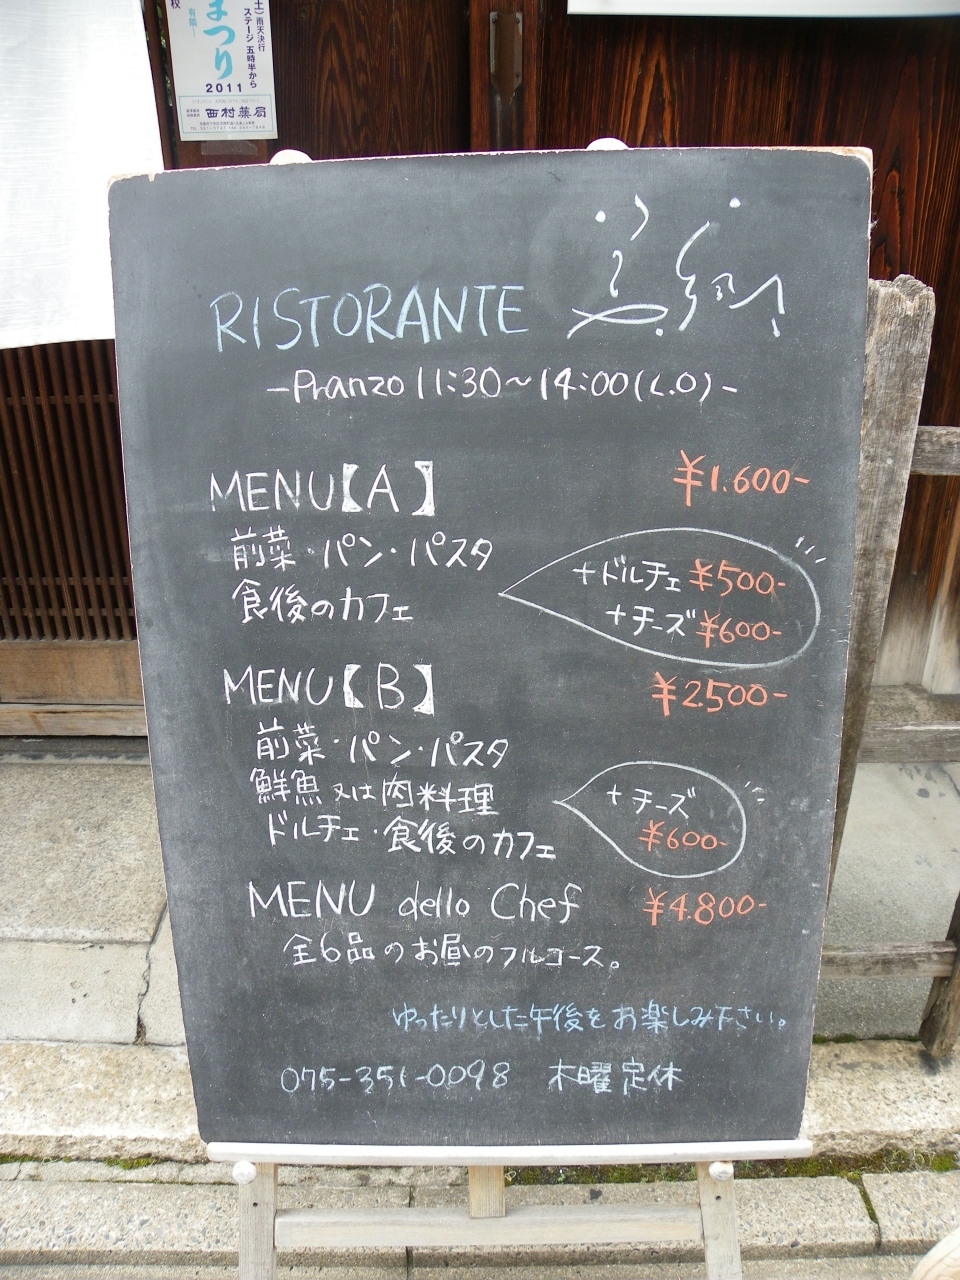 校
まつり
有隣
土)雨天決行
ステージ 五時半から
2011
西村薬局
RISTORANTE
-Pranzo 11:30~14:00(L.O)-
MENU【A】 ¥1.600-
前菜・パン・パスタ
食後のカフェ
+ドルチェ ¥500-
+チーズ ¥600-
MENU【B】 ¥2500-
前菜・パン・パスタ
鮮魚 又は 肉料理
ドルチェ・食後のカフェ
+チーズ
¥600-
MENU dello Chef ¥4.800-
全6品のお昼のフルコース。
ゆったりとした午後をお楽しみ下さい。
075-351-0098 木曜定休